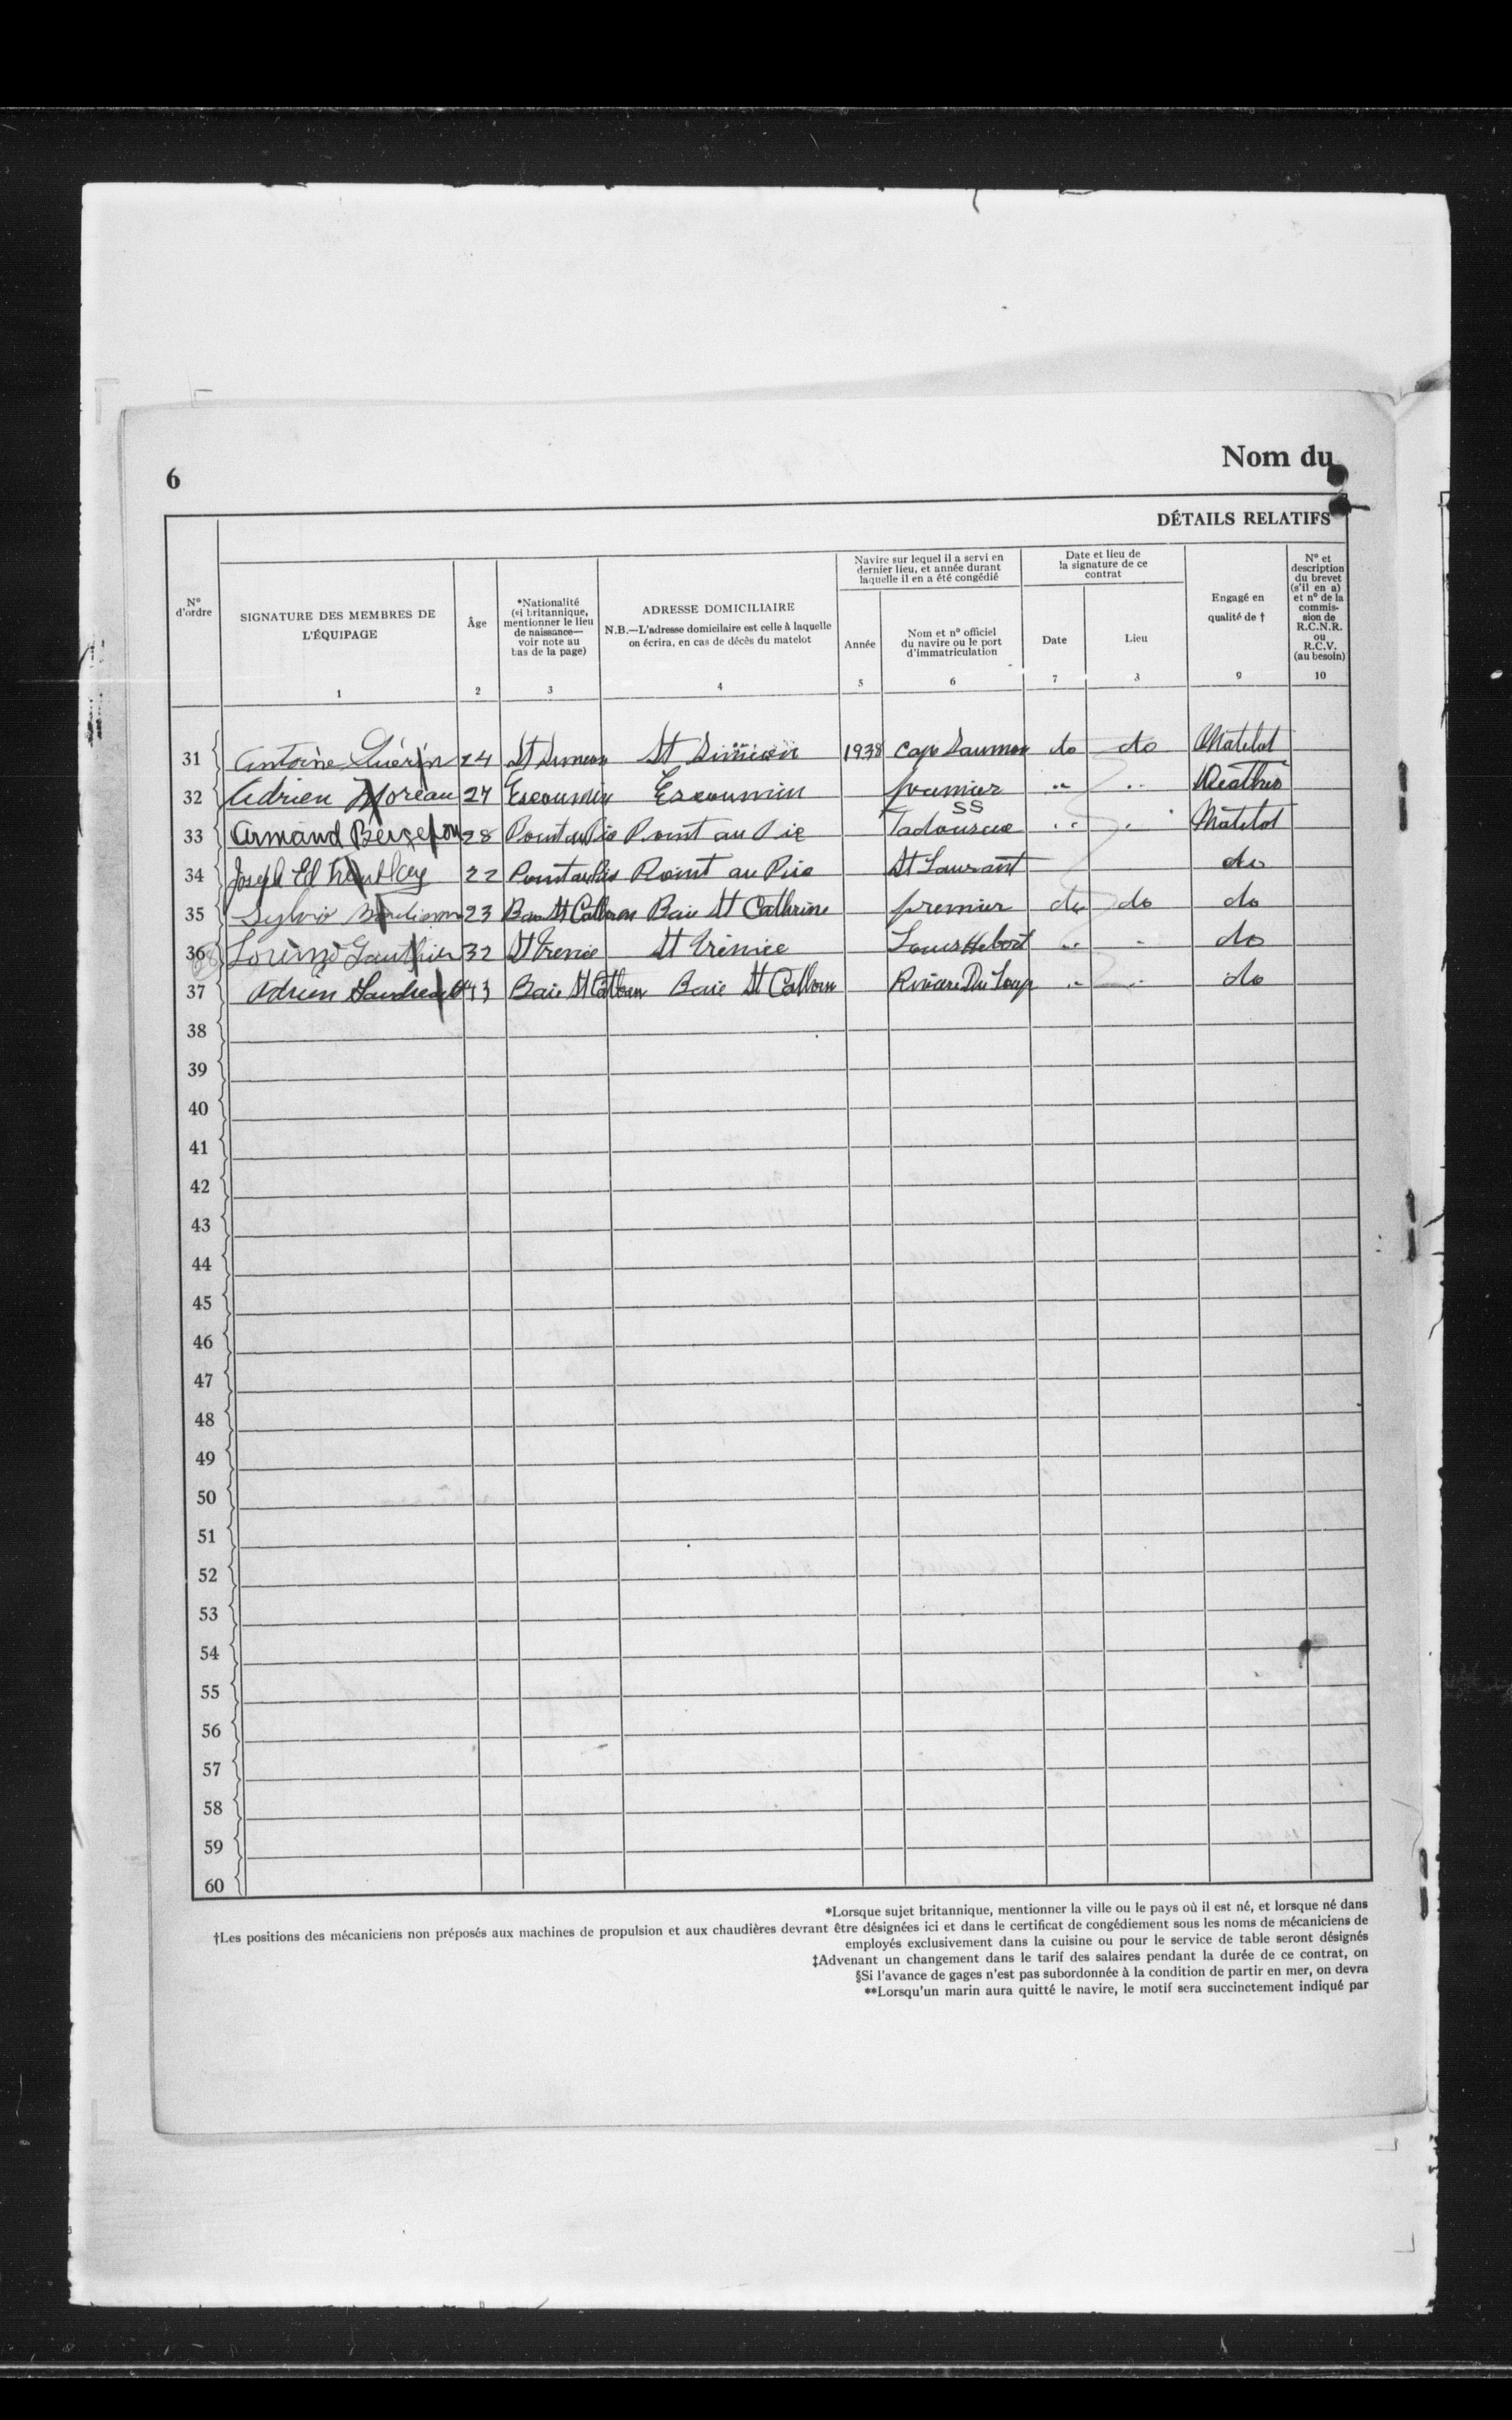 6
Nom du
DÉTAILS RELATIFS
Nº d'ordre
SIGNATURE DES MEMBRES DE L'ÉQUIPAGE
1
Âge
2
*Nationalité (si britannique, mentionner le lieu de naissance—voir note au bas de la page)
3
ADRESSE DOMICILIAIRE
N.B.—L'adresse domicilaire est celle à laquelle on écrira, en cas de décès du matelot
4
Navire sur lequel il a servi en dernier lieu, et année durant laquelle il en a été congédié
Année
5
Nom et nº officiel du navire ou le port d'immatriculation
6
Date et lieu de la signature de ce contrat
Date
7
Lieu
8
Engagé en qualité de †
9
Nº et description du brevet (s'il en a) et nº de la commission de R.C.N.R. ou R.C.V. (au besoin)
10
31 Antoine Guérin 24 St Simeon St Siméon 1938 Cap Saumon do do Matelot
32 Adrien Moreau 27 Escoumin Escoumin premier " "
33 Armand Bergeron 28 Pointau Pic Point au Pic SS Tadousac " " Matelot
34 Joseph Ed Tremblay 22 Pointau Pic Point au Pic St Laurant do
35 Sylvio 23 Baie St Cathrine Baie St Cathrine premier do do do
36 Gauthier 32 St Irenée St Irénée Louis Hebert " " do
37 Adrien 43 Baie St Baie St Riviere Du Loup " " do
38
39
40
41
42
43
44
45
46
47
48
49
50
51
52
53
54
55
56
57
58
59
60
*Lorsque sujet britannique, mentionner la ville ou le pays où il est né, et lorsque né dans
†Les positions des mécaniciens non préposés aux machines de propulsion et aux chaudières devrant être désignées ici et dans le certificat de congédiement sous les noms de mécaniciens de
employés exclusivement dans la cuisine ou pour le service de table seront désignés
‡Advenant un changement dans le tarif des salaires pendant la durée de ce contrat, on
§Si l'avance de gages n'est pas subordonnée à la condition de partir en mer, on devra
**Lorsqu'un marin aura quitté le navire, le motif sera succinctement indiqué par